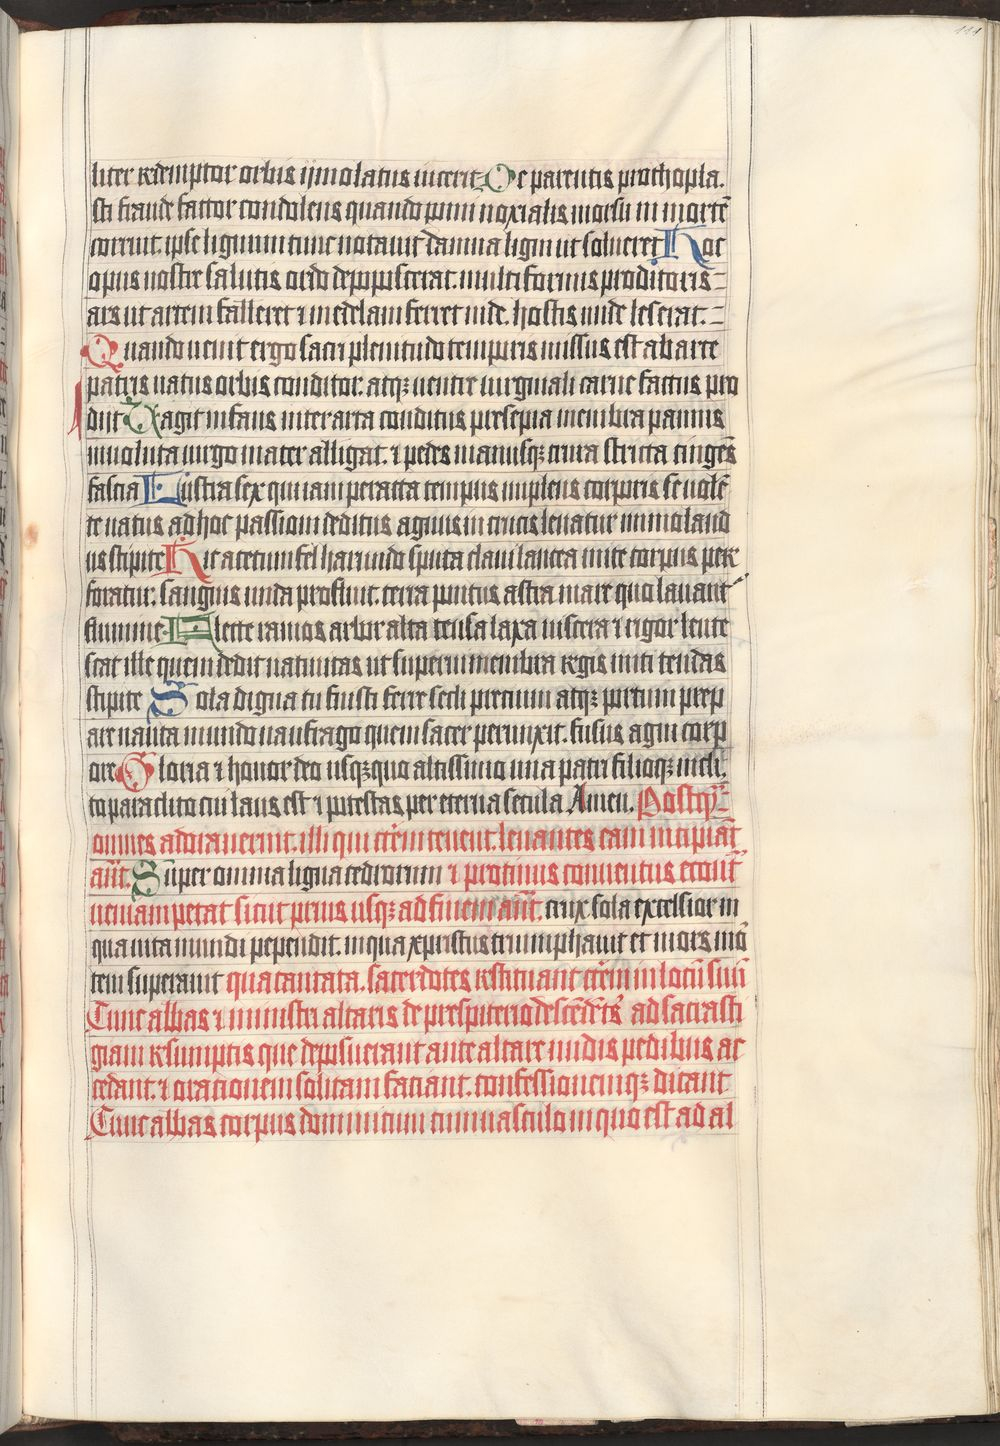 111
liter redemptor orbis ỹmolatus uicerit De parentis prothopla.
sti fraude factor condolens quando pomi noxialis morsu in mortē
corruit ipse lignum tunc notauit dampna ligni ut solueret Hoc
opus nostre salutis ordo depoposcerat. multiformis proditoris
ars ut artem falleret ⁊ medelam ferret inde. hostis unde leserat.
Quando uenit ergo sacri plenitudo temporis missus est ab arce
patris natus orbis conditor. atqꝫ uentre uirginali carne factus pro
diit Vagit infans inter arta conditus presepia membra pannis
inuoluta uirgo mater alligat. ⁊ pedes manusqꝫ crura stricta cingēs
fascia Lustra sex qui iam peracta tempus implens corporis se uolē
te natus ad hoc passioni deditus agnus in crucis leuatur immoland
us stipite Hic acetum fel harundo sputa claui lancea mite corpus per
foratur. sanguis unda profluit. terra pontus astra mare quo lauant᷑
flumine. Flecte ramos arbor alta tensa laxa uiscera ⁊ rigor lente
scat ille quem dedit natiuitas ut superni membra regis miti tendas
stipite Sola digna tu fuisti ferre secli pretium atqꝫ portum prep
are nauta mundo naufrago quem sacer perunxit. fusus agni corp
ore Gloria ⁊ honor deo usqꝫquo altissimo una patri filioqꝫ incli.
to paraclito cui laus est ⁊ potestas per eterna secula Amen. Postqͣꝫ
omnes adorauerint. illi qui cr̄cem tenent. leuantes eam incipiāt
añt. Super omnia ligna cedrorum ⁊ protinus conuentus econṫ
ueniam petat sicut prius usqꝫ ad finem añt. crux sola excelsior in
qua uita mundi pependit. in qua xpristus triumphauit et mors mō
tem superauit qua cantata. sacerdotes restituant cr̄cem in locū suū
Tunc abbas ⁊ ministri altaris de prespiterio descēdētes ad sacrasti
giam resumptis que deposuerant ante altare nudis pedibus ac
cedant. ⁊ orationem solitam faciant. confessionemqꝫ dicant
Tunc abbas corpus dominicum cum uasculo in quo est ad al